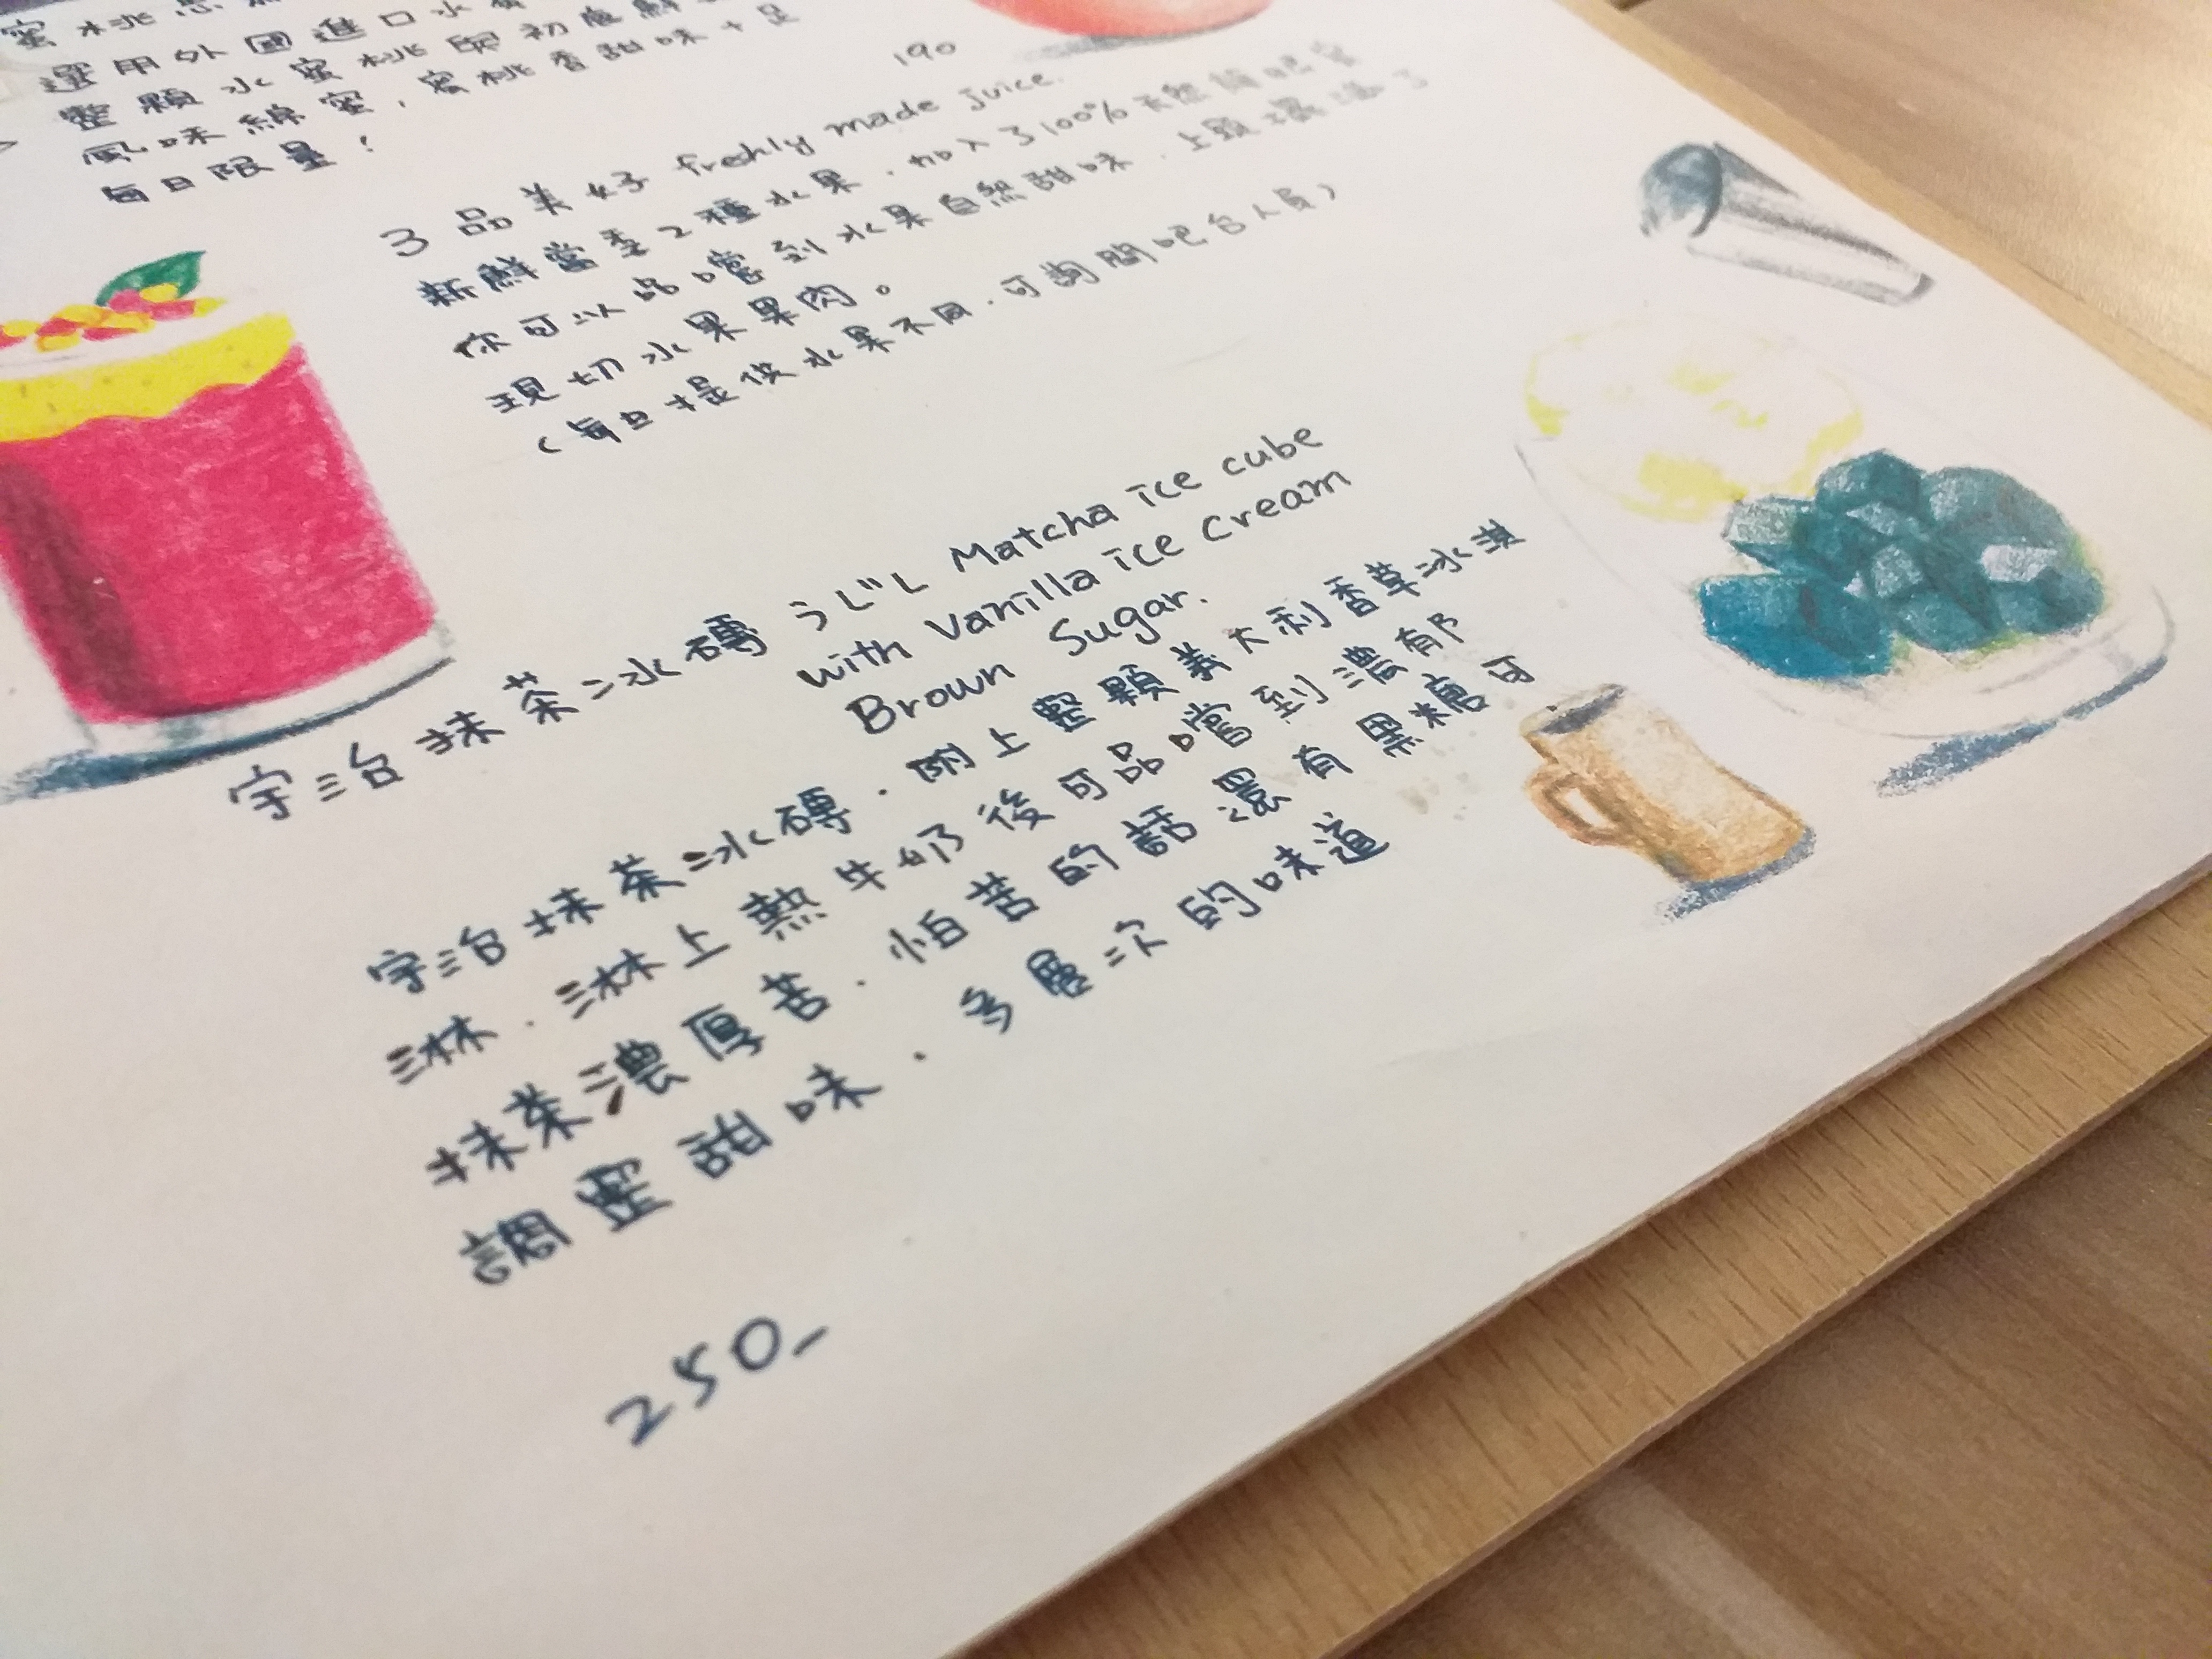 選用外國進口水
整顆水蜜桃與初鹿鮮
風味綿蜜，蜜桃香甜味十足
每日限量！
190
3品美好 freshly made juice.
新鮮當季2種水果．加入了100%天然
你可以品嚐到水果自然甜味．上頭
現切水果果肉。
(每日提供水果不同．可詢問吧台人員)
宇治抹茶冰磚 うじし Matcha ice cube
with Vanilla ice Cream
Brown Sugar.
宇治抹茶冰磚．附上整顆義大利香草冰淇
淋．淋上熱牛奶後可品嚐到濃郁
抹茶濃厚苦．怕苦的話還有黑糖可
調整甜味．多層次的味道
250-